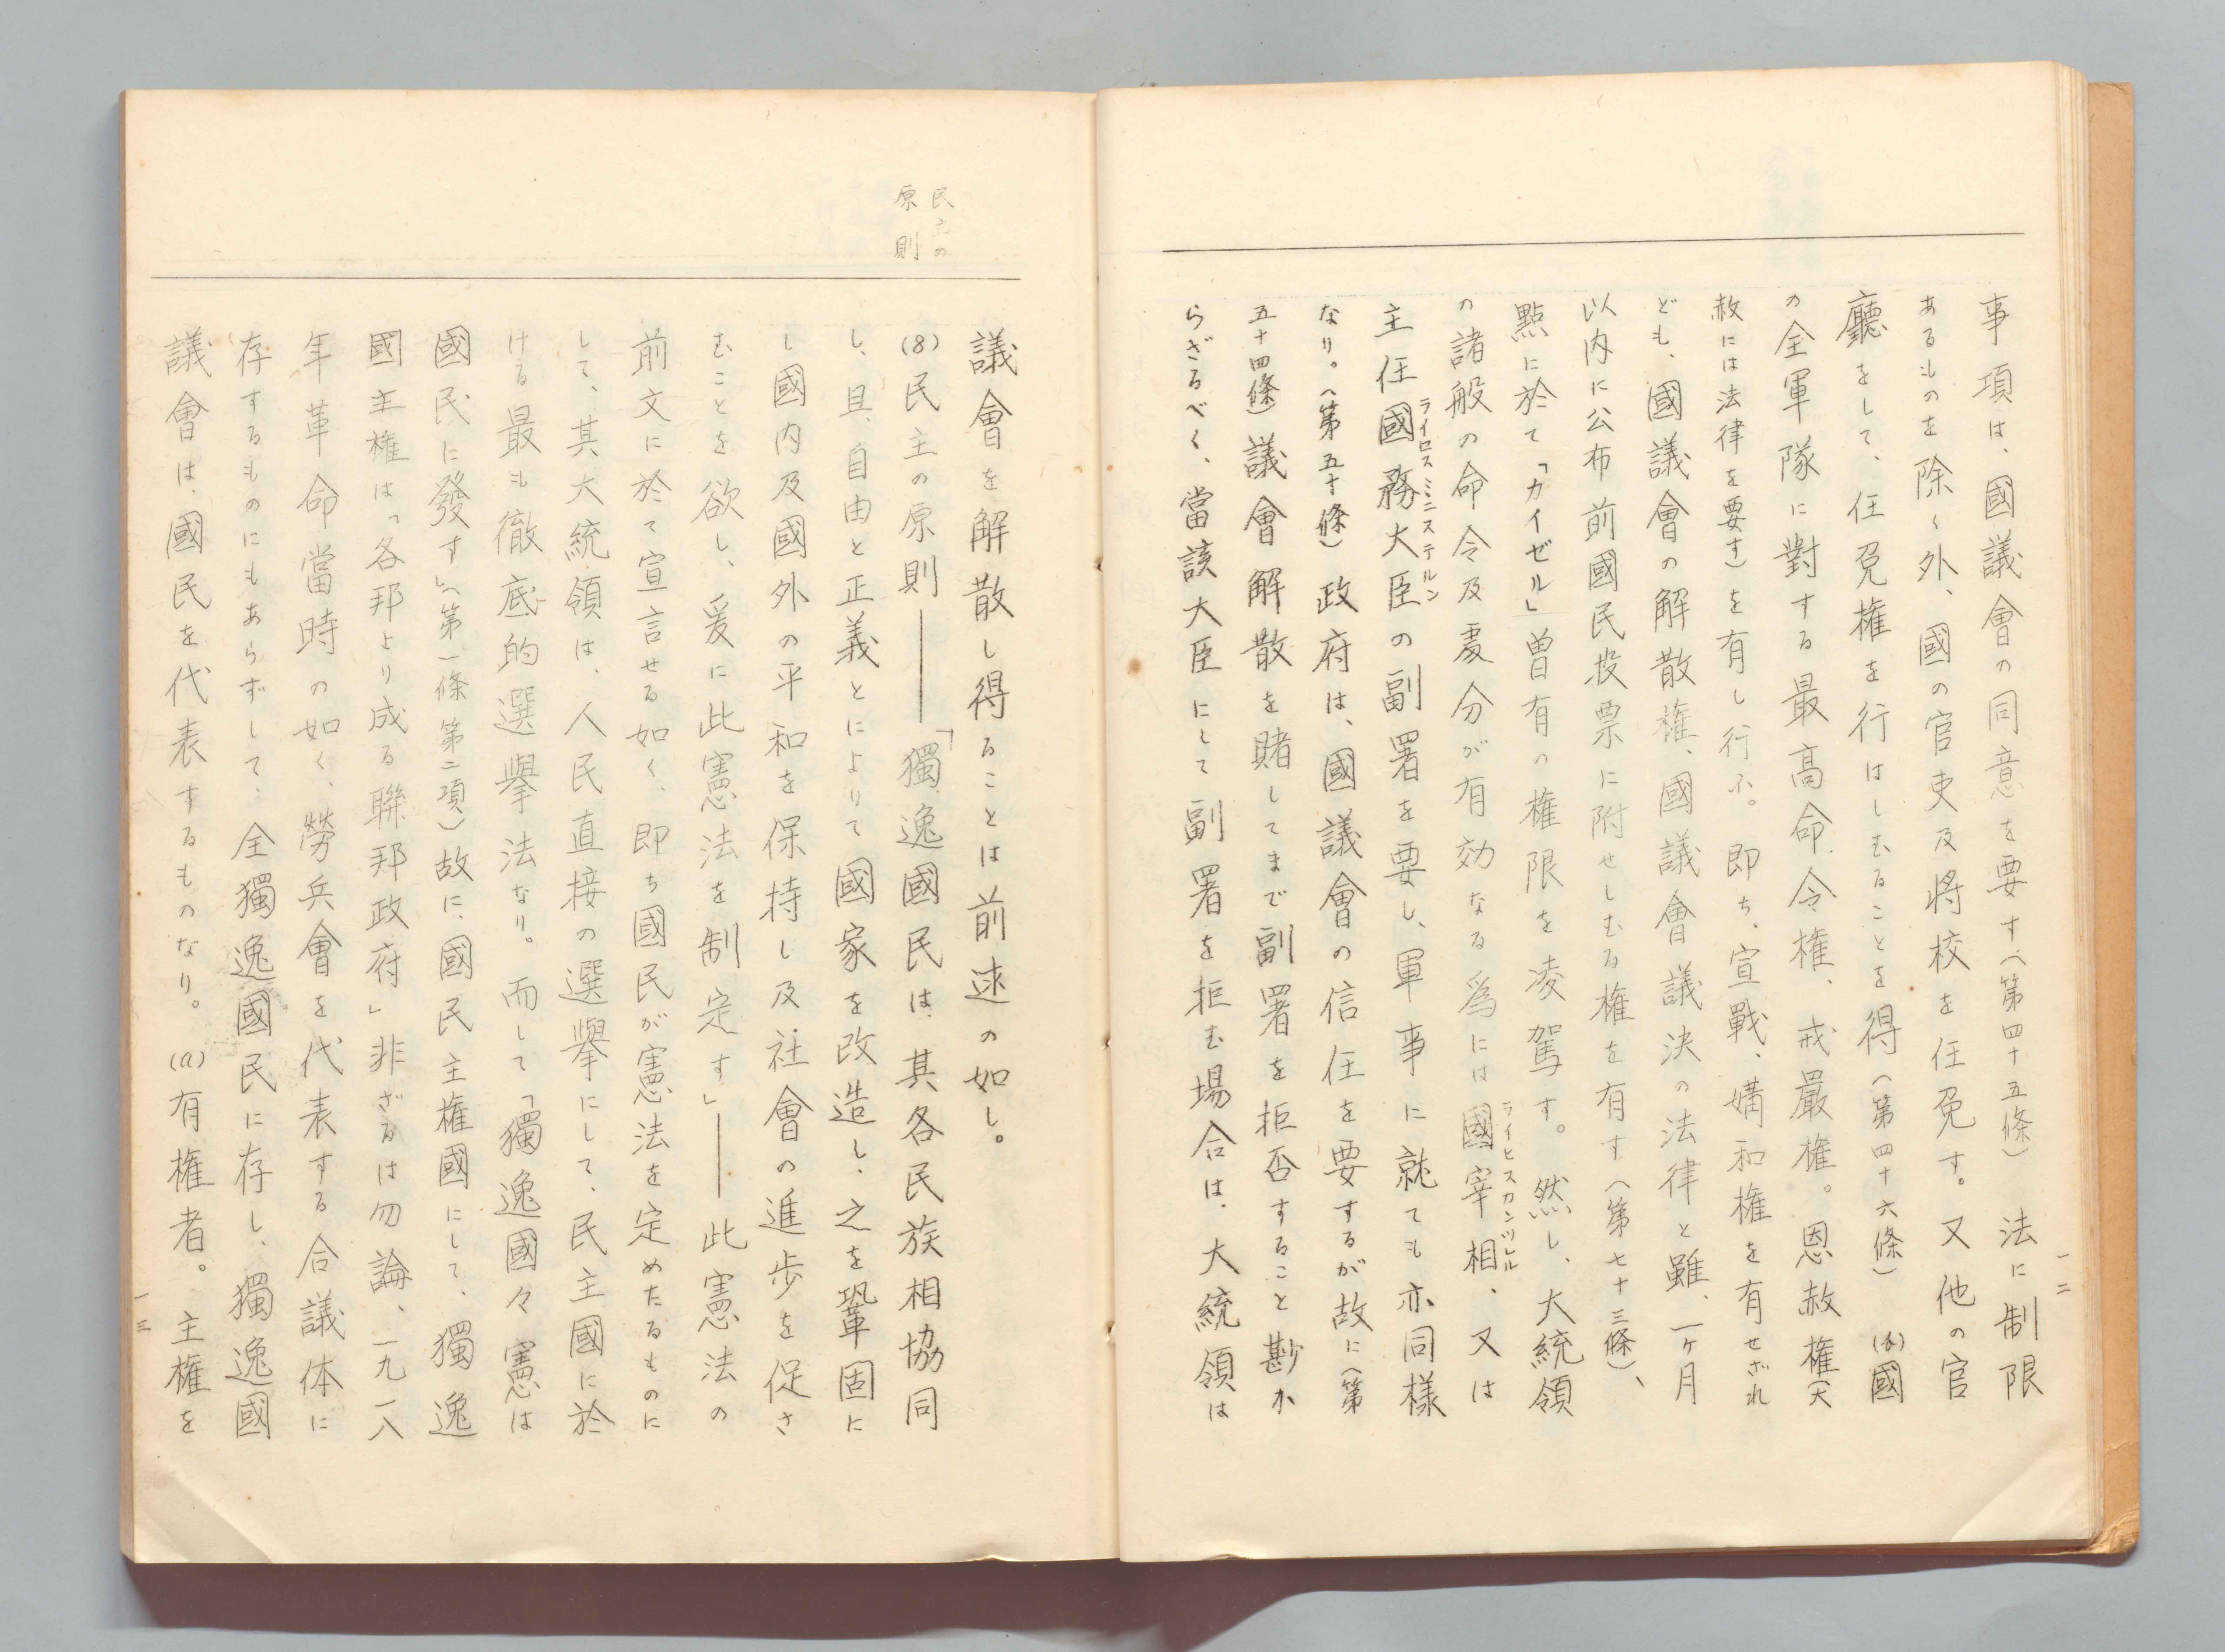 事項は、國議會の同意を要す(第四十五條) 法に制限
あるものを除く外、國の官吏及將校を任免す。又他の官
廳をして、任免權を行はしむることを得(第四十六條) 國
の全軍隊に對する最高命令權、戒嚴權。恩赦權(大
赦には法律を要す)を有し行ふ。即ち、宣戰、媾和權を有せざれ
ども、國議會の解散權、國議會議決の法律と雖、一ヶ月
以内に公布前國民投票に附せしむる權を有す(第七十三條)、
點に於て「カイゼル」曽有の權限を凌駕す。然し、大統領
の諸般の命令及處分が有効なる爲には國宰相、又は
ライヒスカンツレル
主任國務大臣の副署を要し、軍事に就ても亦同樣
ライヒスミニステルン
なり。(第五十條) 政府は、國議會の信任を要するが故に(第
五十四條)議會解散を賭してまで副署を拒否すること尠か
らざるべく、當該大臣にして副署を拒む場合は、大統領は
一二
民主の
原則
議會を解散し得ることは前述の如し。
(8)民主の原則――「獨逸國民は、其各民族相協同
し、且、自由と正義とによりて國家を改造し、之を鞏固に
し國内及國外の平和を保持し及社會の進歩を促さ
むことを欲し、爰に此憲法を制定す」――此憲法の
前文に於て宣言せる如く、即ち國民が憲法を定めたるものに
して、其大統領は、人民直接の選擧にして、民主國に於
ける最も徹底的選擧法なり。而して「獨逸國々憲は
國民に發す」(第一條第二項)故に、國民主權國にして、獨逸
國主權は「各邦より成る聯邦政府」非ざるは勿論、一九一八
年革命當時の如く、勞兵會を代表する合議体に
存するものにもあらずして、全獨逸國民に存し、獨逸國
議會は、國民を代表するものなり。(a)有權者。主權を
一三